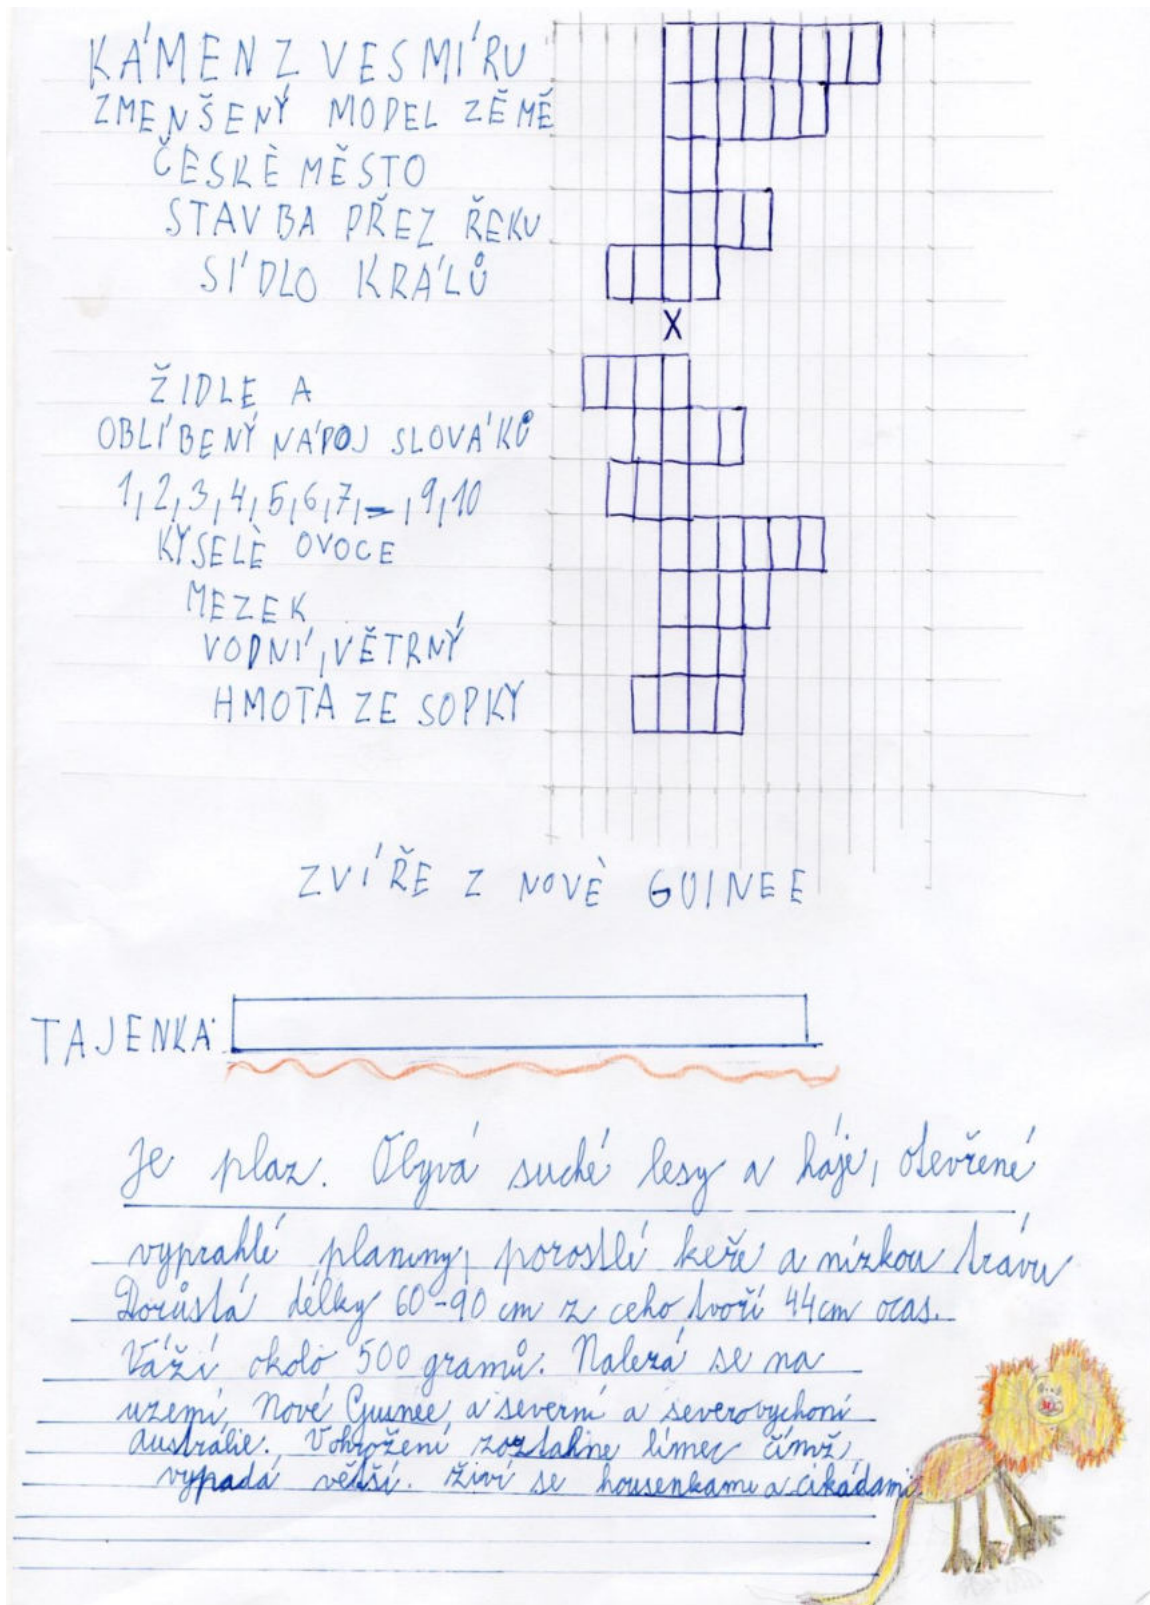 KÁMEN Z VESMÍRU
ZMENŠENÝ MODEL ZĚMĚ
ČESKÈ MĚSTO
STAVBA PŘEZ ŘEKU
SÍDLO KRÁLŮ
X
ŽIDLE A
OBLÍBENÝ NÁPOJ SLOVÁKŮ
1,2,3,4,5,6,7,–,9,10
KYSELÈ OVOCE
MEZEK
VODNÍ, VĚTRNÝ
HMOTA ZE SOPKY
ZVÍŘE Z NOVÈ GUINEE
TAJENKA:
Je plaz. Obývá suché lesy a háje, otevřené
vyprahlé planiny, porostlé keře a nízkou trávu
Dorůstá délky 60-90 cm z ceho tvoří 44cm ocas.
Váží okolo 500 gramů. Nalezá se na
uzemí, Nové Guinee, a severní a severovychoní
Austrálie. V ohrožení roztahne límec čímž,
vypadá větší. živí se housenkami a cikádami